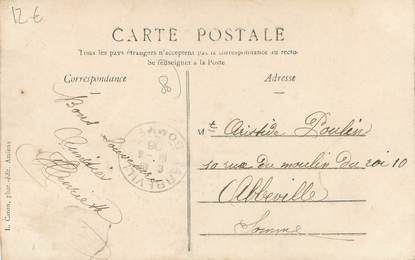 12 €
CARTE POSTALE
Tous les pays étrangers n'acceptent pas la correspondance au recto
Se renseigner à la Poste
Correspondance
Adresse
80
Bons
Souvenirs
L. Caron, phot.-édit. Amiens
ABBEVILLE
SOMME
Mr Aristide Poulin
10 rue du moulin du roi 10
Abbeville
Somme